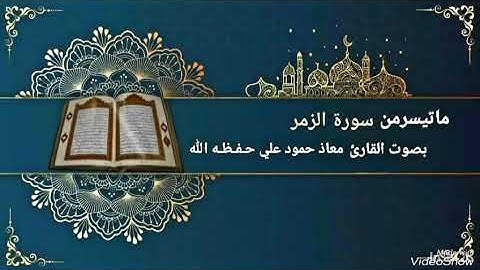 ماتيسرمن سورة الزمر
بصوت القارئ معاذ حمود علي حـفـظـه الله
VideoShow